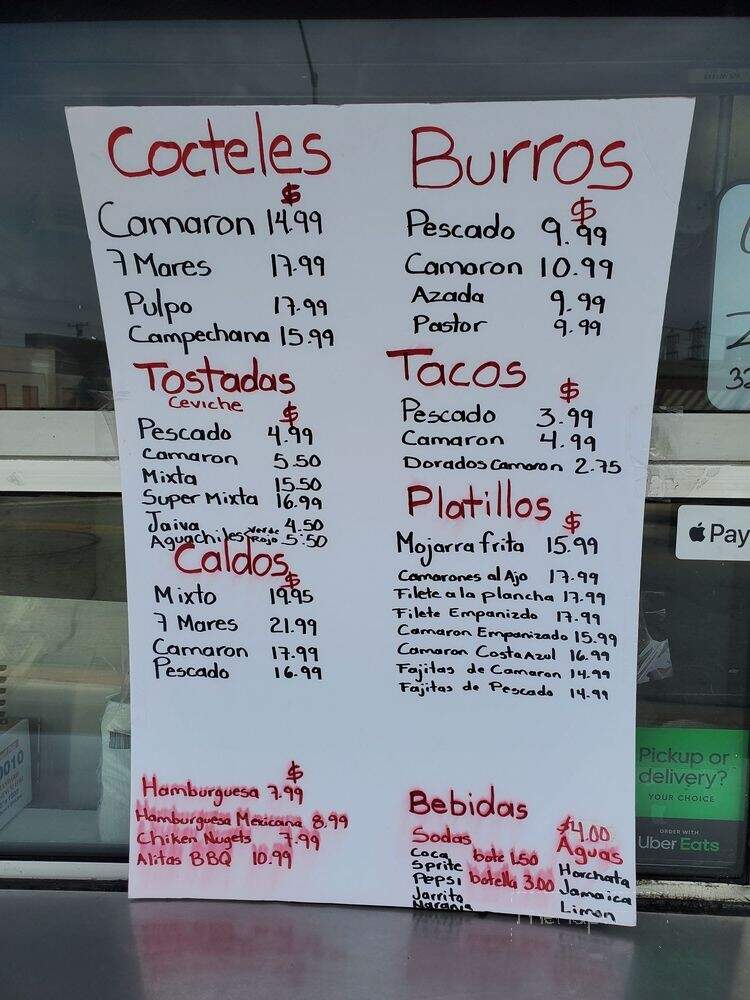 Cocteles
$
Camaron 14.99
7 Mares 17.99
Pulpo 17.99
Campechana 15.99
Tostadas
Ceviche
$
Pescado 4.99
Camaron 5.50
Mixta 15.50
Super Mixta 16.99
Jaiva 4.50
Aguachiles Verde Rojo 5.50
Caldos
$
Mixto 19.95
7 Mares 21.99
Camaron 17.99
Pescado 16.99
$
Hamburguesa 7.99
Hamburguesa Mexicana 8.99
Chiken Nugets 7.99
Alitas BBQ 10.99
Burros
$
Pescado 9.99
Camaron 10.99
Azada 9.99
Pastor 9.99
Tacos
$
Pescado 3.99
Camaron 4.99
Dorados Camaron 2.75
Platillos
$
Mojarra frita 15.99
Camarones al Ajo 17.99
Filete a la plancha 17.99
Filete Empanizdo 17.99
Camaron Empanizado 15.99
Camaron Costa Azul 16.99
Fajitas de Camaron 14.99
Fajitas de Pescado 14.99
Bebidas
Sodas
Coca bote 1.50
Sprite
Pepsi botella 3.00
Jarrito
Narania
$4.00
Aguas
Horchata
Jamaica
Limon
Pay
Pickup or
delivery?
YOUR CHOICE
ORDER WITH
Uber Eats